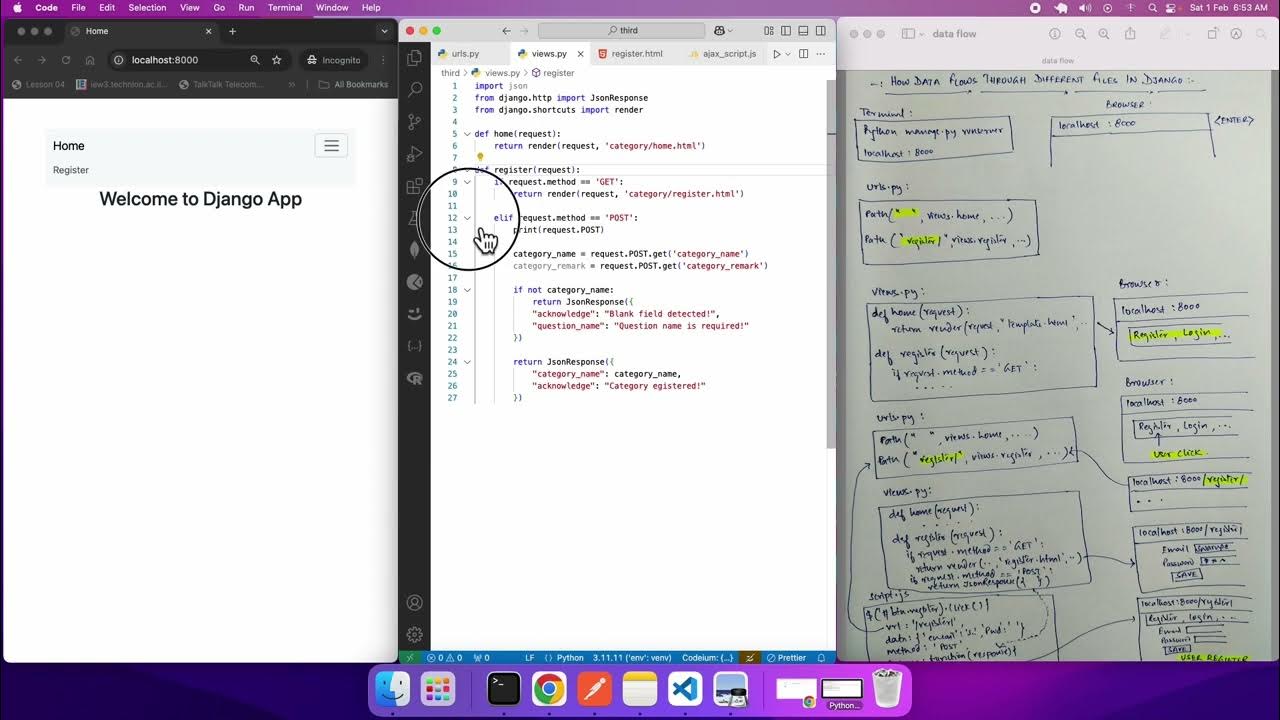 Code File Edit Selection View Go Run Terminal Window Help
Sat 1 Feb 6:53 AM
Home
localhost:8000
Incognito
Lesson 04
iew3.technion.ac.il
TalkTalk Telecom...
»
All Bookmarks
Home
Register
Welcome to Django App
third
urls.py
views.py
register.html
ajax_script.js
third > views.py > register
1 import json
2 from django.http import JsonResponse
3 from django.shortcuts import render
4
5 def home(request):
6 return render(request, 'category/home.html')
7
8 def register(request):
9 if request.method == 'GET':
10 return render(request, 'category/register.html')
11
12 elif request.method == 'POST':
13 print(request.POST)
14
15 category_name = request.POST.get('category_name')
16 category_remark = request.POST.get('category_remark')
17
18 if not category_name:
19 return JsonResponse({
20 "acknowledge": "Blank field detected!",
21 "question_name": "Question name is required!"
22 })
23
24 return JsonResponse({
25 "category_name": category_name,
26 "acknowledge": "Category egistered!"
27 })
0 0 0 LF Python 3.11.11 ('env': venv) Codeium: {...} Prettier
data flow
data flow
HOW DATA FLOWS THROUGH DIFFERENT FILES IN DJANGO :-
Terminal :
Python manage.py runserver
localhost : 8000
BROWSER :
localhost : 8000
<ENTER>
urls.py :
Path(" ", views.home, ...)
Path ("register/", views.register, ...)
views.py :
def home(request) :
return render(request, "template.html", ..
def register(request) :
if request.method == 'GET' :
.....
Browser :
localhost : 8000
Register , Login , ...
Browser :
localhost : 8000
Register , Login , ...
USER CLICK
urls.py :
Path(" ", views.home, ....)
Path ("register/", views.register, ...)
localhost : 8000/register/
...
views.py :
def home(request) :
.....
def register(request) :
if request.method == 'GET' :
return render(.., 'register.html', ..)
if request.method == 'POST' :
return JsonResponse({ })
localhost:8000/register/
Email
Password
SAVE
script.js
$('#btn-register').click( )
url : '/register/'
data : { 'email' : '..', 'Pwd' : ' '}
method : 'POST'
function(response){
localhost:8000/register/
Register, login, ...
Email
Password
SAVE
USER REGISTER
Python...